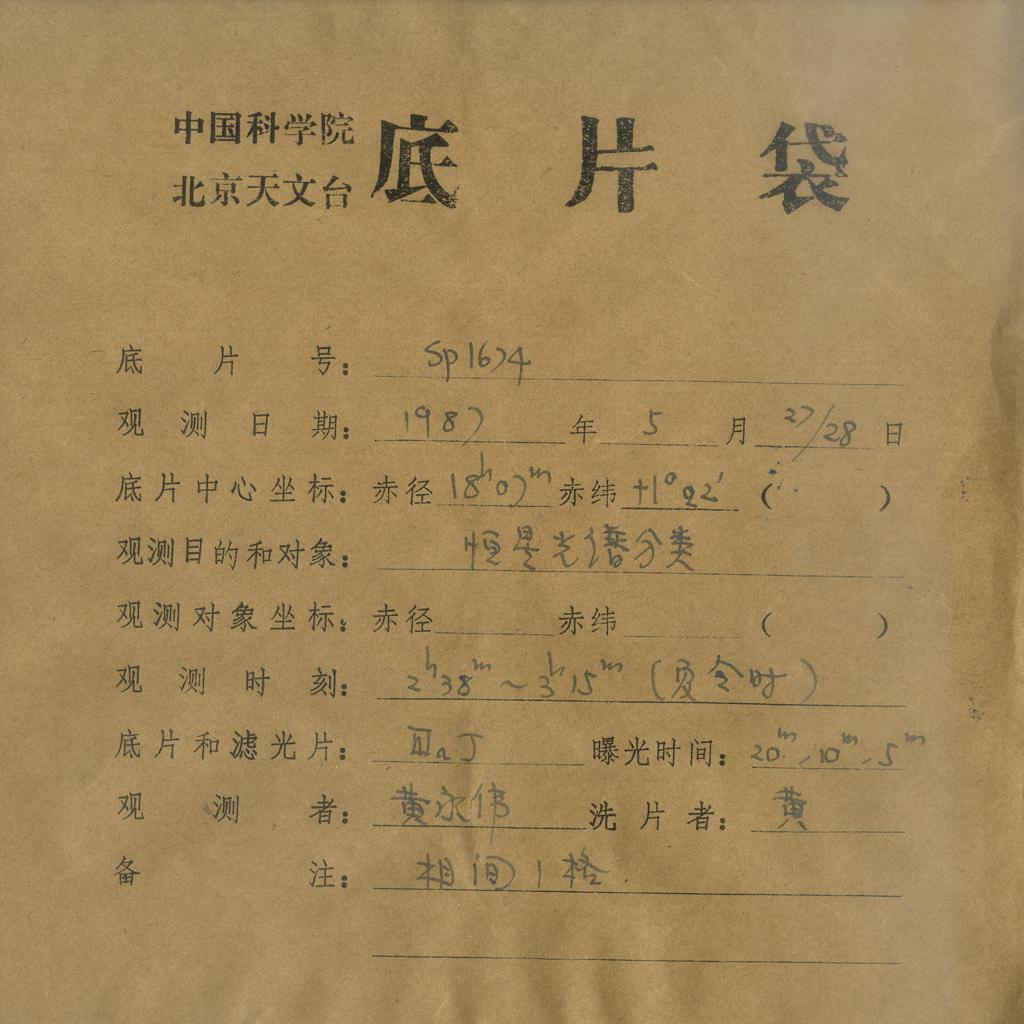 中国科学院
北京天文台
底片袋
底片号： Sp1674
观测日期： 1987年5月27/28日
底片中心坐标： 赤径18h07m赤纬+1°22′（ ）
观测目的和对象： 恒星光谱分类
观测对象坐标： 赤径 赤纬 （ ）
观测时刻： 2h38m～3h15m（夏令时）
底片和滤光片： ⅡaJ 曝光时间： 20m，10m，5m
观测者： 黄永伟 洗片者： 黄
备注： 相间1格.